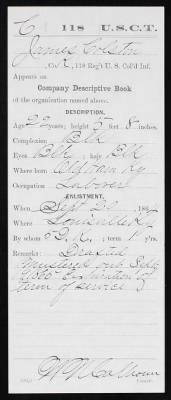 C 118 U.S.C.T.
James Colston
, Co. K, 118 Reg't U. S. Col'd Inf.
Appears on
Company Descriptive Book
of the organization named above.
DESCRIPTION.
Age 22 years; height 5 feet 8 inches.
Complexion Blk
Eyes Blk ; hair Blk
Where born Ky
Occupation Laborer
ENLISTMENT.
When Sept 20 , 186
Where Louisville Ky
By whom ; term 1 y'rs.
Remarks: Drafted
Mustered out Sept
1865 Expiration of
term of service
Calhoun
Copyist.